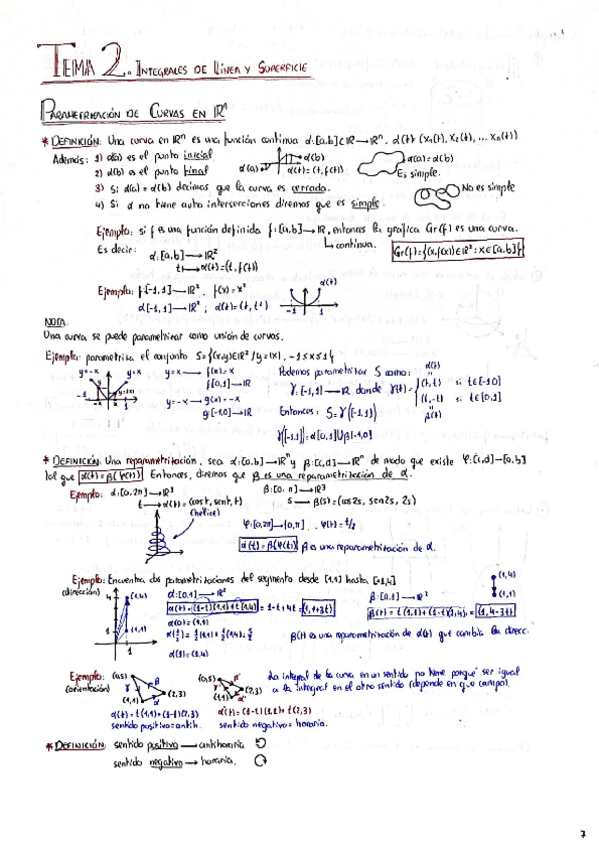 TEMA 2. INTEGRALES DE LÍNEA Y SUPERFICIE
PARAMETRIZACIÓN DE CURVAS EN ℝⁿ
* DEFINICIÓN: Una curva en ℝⁿ es una función continua α:[a,b]⊂ℝ → ℝⁿ. α(t)=(x₁(t), x₂(t), ... xₙ(t))
Además: 1) α(a) es el punto inicial.
2) α(b) es el punto final.
3) Si α(a) = α(b) decimos que la curva es cerrada.
4) Si α no tiene auto intersecciones diremos que es simple.
α(a) α(b) α(t)=(t, f(t))
α(a)=α(b)
Es simple.
No es simple
Ejemplo: si f es una función definida f:[a,b]→ℝ, entonces la gráfica Gr(f) es una curva.
↳ continua.
Es decir: α:[a,b] → ℝ²
t → α(t)=(t, f(t))
Gr(f)={(x,f(x))∈ℝ²: x∈[a,b]}
Ejemplo: f:[-1,1] → ℝ². f(x)=x²
α[-1,1] → ℝ²; α(t)=(t, t²)
α(t)
-1 1
NOTA:
Una curva se puede parametrizar como unión de curvas.
Ejemplo: parametriza el conjunto S={(x,y)∈ℝ² / y=|x|, -1≤x≤1}
y=-x y=x
y=|x|
-1 1
y=x → f(x)=x
f[0,1] → ℝ
y=-x → g(x)=-x
g[-1,0] → ℝ
Podemos parametrizar S como:
γ:[-1,1] → ℝ donde γ(t)=
α(t)
(t,t) si t∈[-1,0]
(t,-t) si t∈[0,1]
β(t)
Entonces: S=γ([-1,1])
γ([-1,1])=α[0,1]∪β[-1,0]
* DEFINICIÓN: Una reparametrización, sea α:[a,b]→ℝⁿ y β:[c,d]→ℝⁿ de modo que existe φ:[c,d]→[a,b]
tal que α(t)=β(φ(t)) Entonces, diremos que β es una reparametrización de α.
Ejemplo: α:[0,2π]→ℝ³
t → α(t)=(cost, sent, t)
(hélice)
β:[0,π]→ℝ³
s → β(s)=(cos2s, sen2s, 2s)
φ:[0,2π]→[0,π]. φ(t)=t/2
α(t)=β(φ(t)) β es una reparametrización de α.
Ejemplo: Encuentra dos parametrizaciones del segmento desde (1,1) hasta (1,4)
(dirección)
4 (1,4)
1 (1,1)
1
α:[0,1] → ℝ²
α(t)=(1-t)(1,1)+t(1,4) = 1-t+4t = (1,1+3t)
α(0)=(1,1)
α(1)=(1,4)
β:[0,1] → ℝ²
β(t)=t(1,1)+(1-t)(1,4) = (1,4-3t)
(1,4)
(1,1)
β(t) es una reparametrización de α(t) que cambia la direcc.
Ejemplo:
(orientación)
(0,5) β
γ (2,3)
(1,1) α
α(t)=t(1,1)+(1-t)(2,3)
sentido positivo=antih.
(0,5) β
(2,3)
(1,1) α
α(t)=(1-t)(1,1)+t(2,3)
sentido negativo=horaria.
La integral de la curva en un sentido no tiene porqué ser igual
a la integral en el otro sentido (depende en que campo).
* DEFINICIÓN: sentido positivo → antihoraria ↺
sentido negativo → horaria. ↻
7